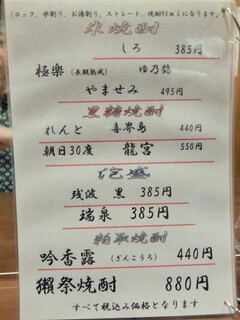 (ロック、水割り、お湯割り、ストレート、焼酎90mlになります。)
米焼酎
しろ 385円
極楽 (長期熟成) ゆ乃鶴
やませみ 495円
黒糖焼酎
れんと 喜界島 440円
朝日30度 龍宮 550円
泡盛
残波 黒 385円
瑞泉 385円
粕取焼酎
吟香露 (ぎんこうろ) 440円
獺祭焼酎 880円
すべて税込み価格となります